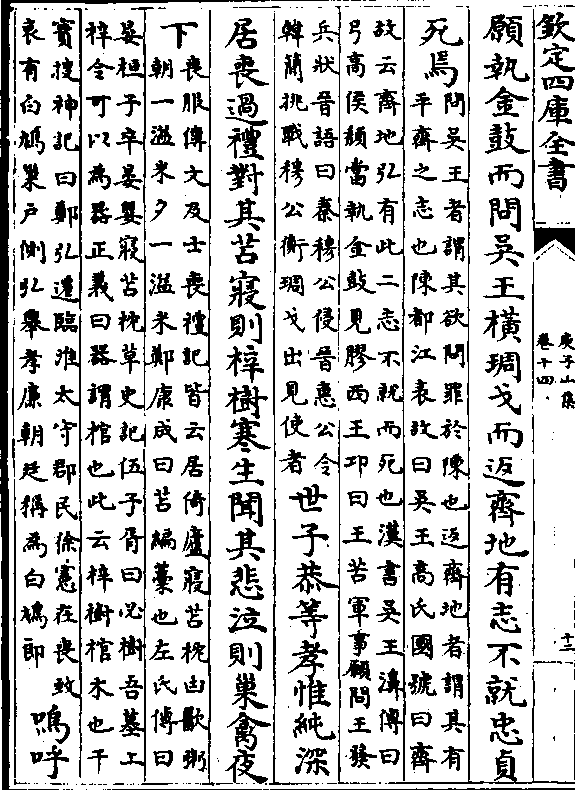 欽定四庫全書
庾子山集
卷十四
十三
願執金鼓而問吳王橫琱戈而返齊地有志不就忠貞
死焉
問吳王者謂其欲問罪於陳也返齊地者謂其有
平齊之志也陳都江表故曰吳王高氏國號曰齊
故云齊地弘有此二志不就而死也漢書吳王濞傳曰
弓高侯頽當執金鼓見膠西王卭曰王苦軍事願問王發
兵狀晉語曰秦穆公侵晉惠公令
韓簡挑戰穆公衡琱戈出見使者
世子恭等孝惟純深
居喪過禮對其苫寢則梓樹寒生聞其悲泣則巢禽夜
下
喪服傳文及士喪禮記皆云居倚廬寢苫枕凷歠粥
朝一溢米夕一溢米鄭康成曰苫編藁也左氏傳曰
晏桓子卒晏嬰寢苫枕草史記伍子胥曰必樹吾墓上
梓令可以為器正義曰器謂棺也此云梓樹棺木也干
寶搜神記曰鄭弘遷臨淮太守郡民徐憲在喪致
哀有白鳩巢戶側弘舉孝廉朝廷稱為白鳩郎
嗚呼